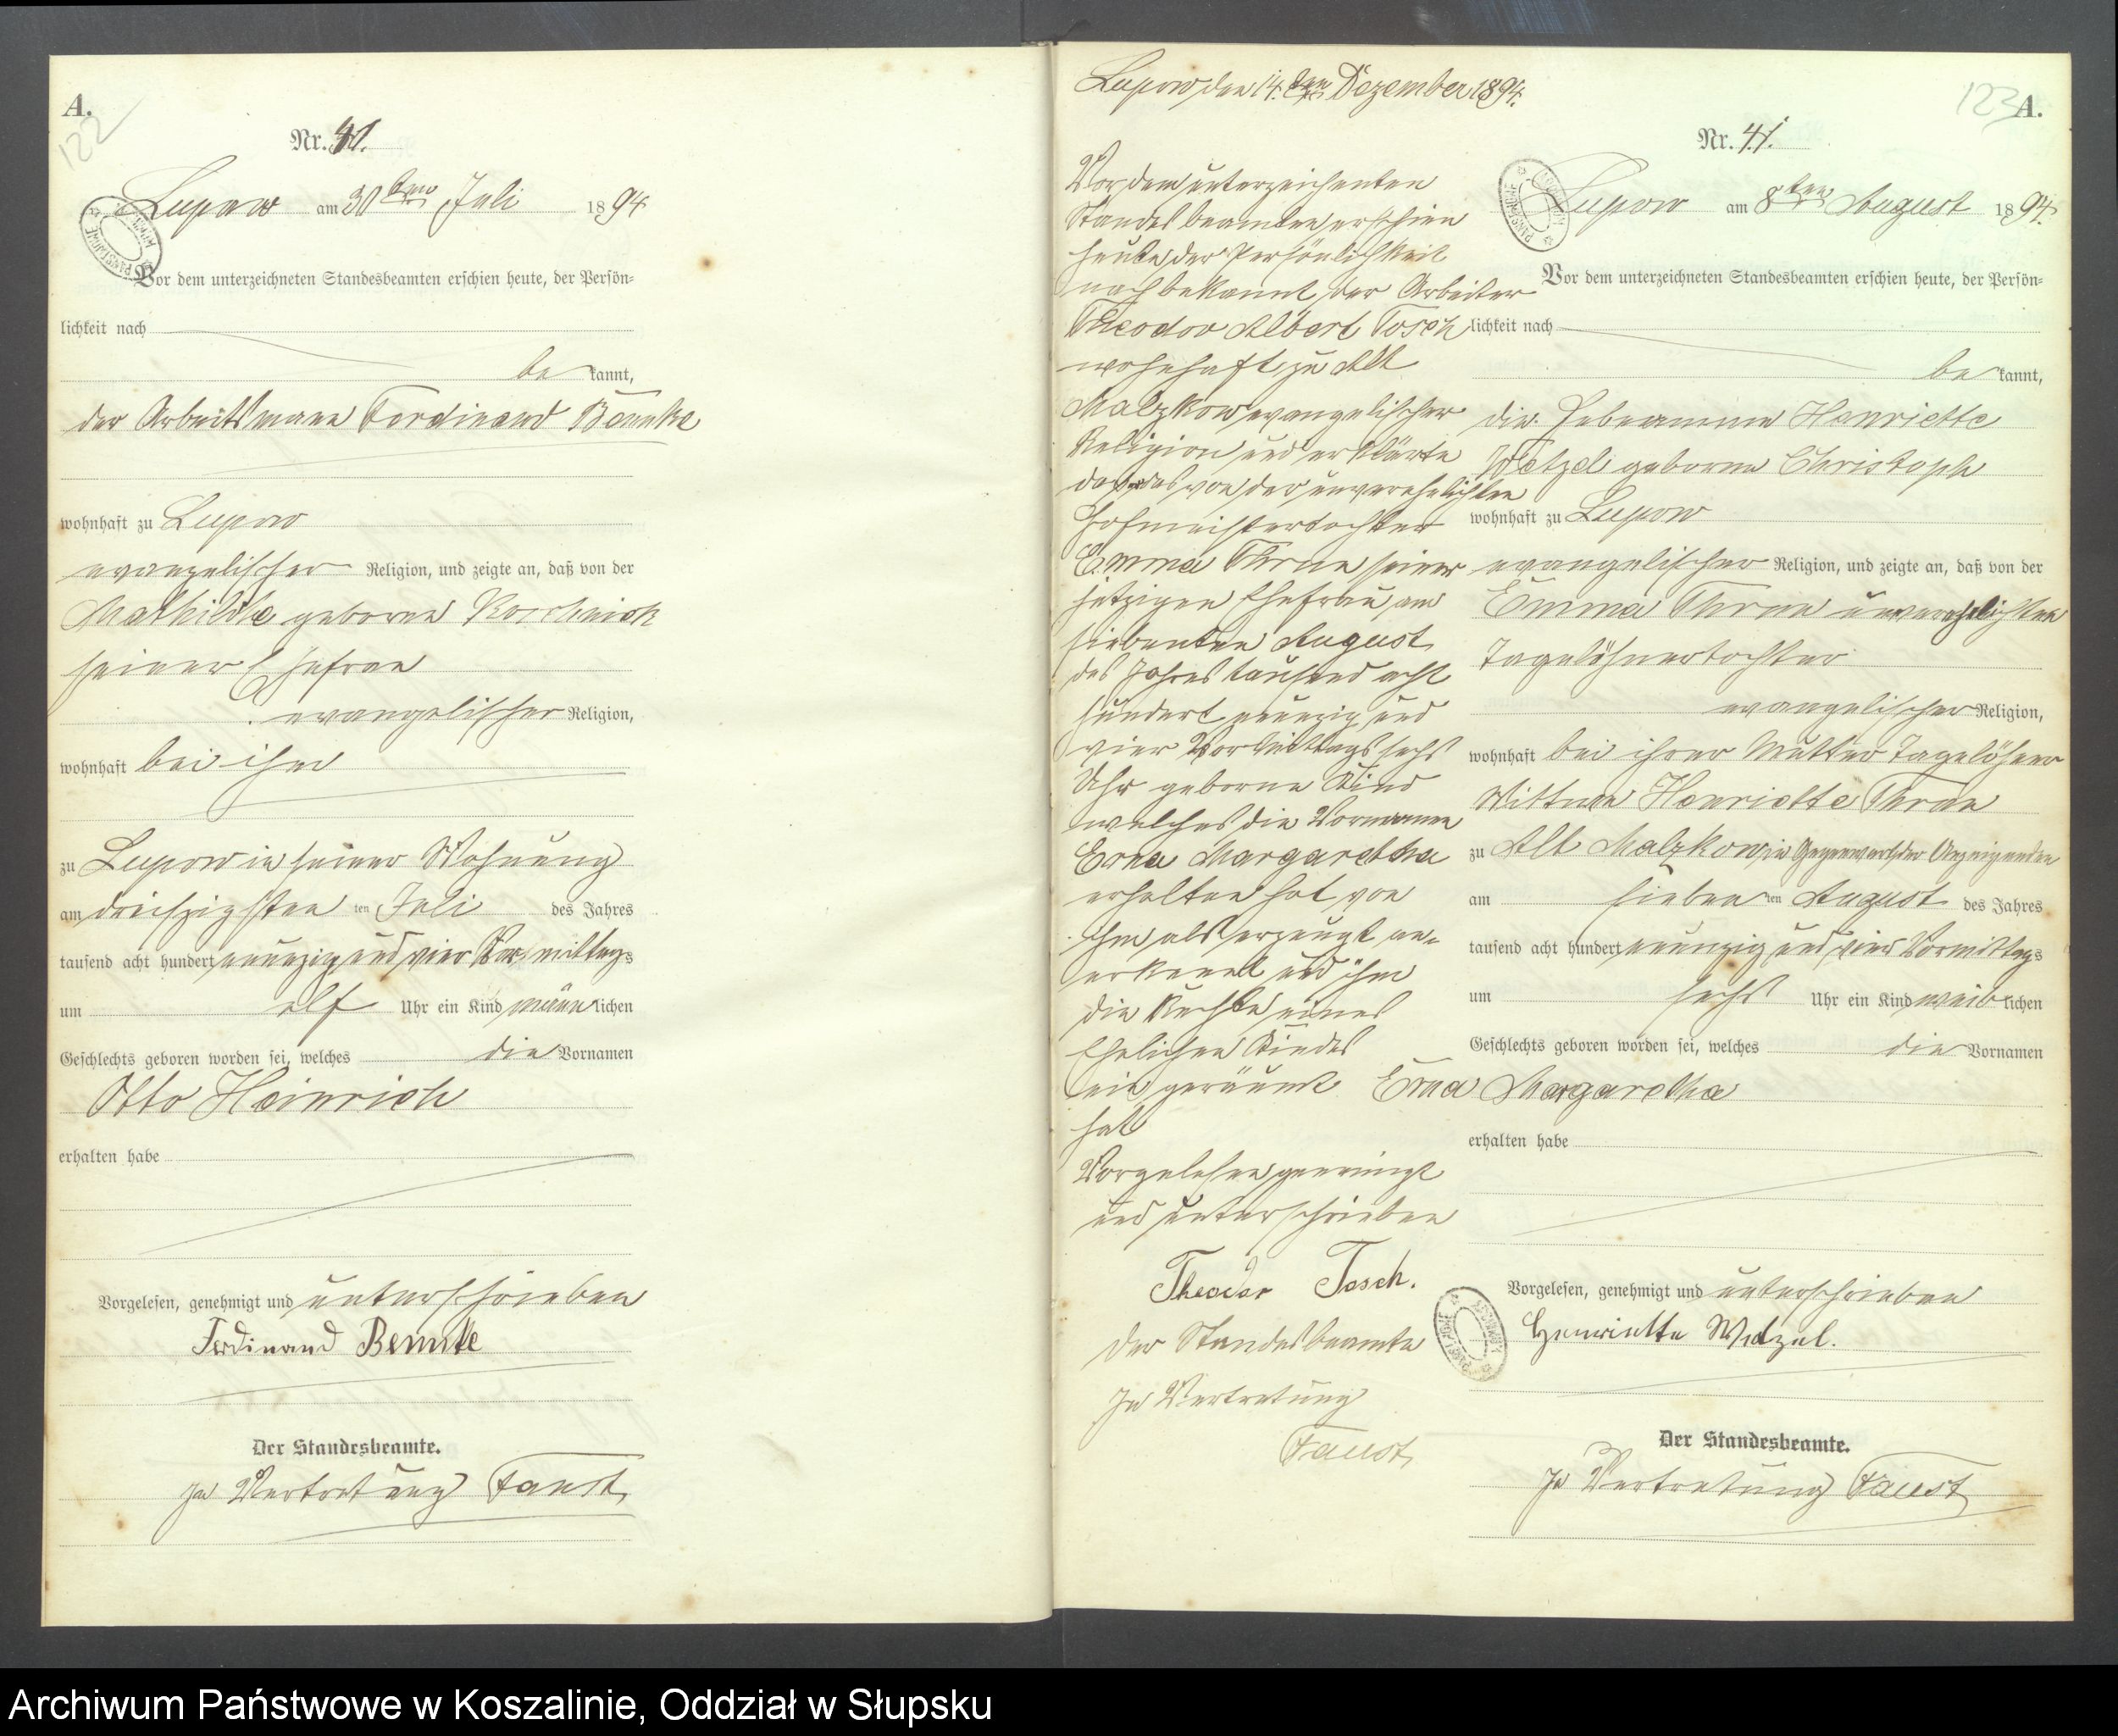 A.
122
Nr. 40.
Lupow am 30ten Juli 1894
Vor dem unterzeichneten Standesbeamten erschien heute, der Persön-
lichkeit nach
be kannt,
der Arbeitsmann Ferdinand Bennke
wohnhaft zu Lupow
evangelischer Religion, und zeigte an, daß von der
Mathilde geborne
seiner Ehefrau
evangelischer Religion,
wohnhaft bei ihm
zu Lupow in seiner Wohnung
am dreiszigsten ten Juli des Jahres
tausend acht hundert neunzig und vier Vor mittags
um elf Uhr ein Kind männ lichen
Geschlechts geboren worden sei, welches die Vornamen
Otto Heinrich
erhalten habe
Vorgelesen, genehmigt und unterschrieben
Ferdinand Bennke
Der Standesbeamte.
In Vertretung Faust
Lupow den 14. ten Dezember 1894.
Vor dem unterzeichenten
Standesbeamten erschien
heute der Persönlichkeit
nach bekannt, der Arbeiter
Theodor Albert Tosch
wohnhaft zu Alt
Malzkow evangelischer
Religion und erklärte
das das von der unverehelichten
Hofmeistertochter
Emma Thrun seiner
jetzigen Ehefrau am
siebenten August
des Jahres tausend acht
hundert neunzig und
vier Vormittags sechs
Uhr geborne Kind
welches die Vornamen
Erna Margaretha
erhalten hat von
ihm als erzeugt an-
erkannt und ihm
die Rechte eines
Ehelichen Kindes
ein geräumt
hat
Vorgelesen genemigt
und unterschrieben
Theodor Tosch.
Der Standesbeamte
In Vertretung
Faust
123
A.
Nr. 41.
Lupow am 8ten August 1894.
Vor dem unterzeichneten Standesbeamten erschien heute, der Persön-
lichkeit nach
be kannt,
die Hebeamme Henriette
Wetzel geborne Christoph
wohnhaft zu Lupow
evangelischer Religion, und zeigte an, daß von der
Emma Thrun unverehelichten
Tagelöhnertochter
evangelischer Religion,
wohnhaft bei ihrer Mutter Tagelöhner
Wittwe Henriette Thrun
zu Alt Malzkow, in Gegenwart der Anzeigenden
am sieben ten August des Jahres
tausend acht hundert neunzig und vier Vormittags
um sechs Uhr ein Kind weib lichen
Geschlechts geboren worden sei, welches die Vornamen
Erna Margaretha
erhalten habe
Vorgelesen, genehmigt und unterschrieben
Henriette Wetzel.
Der Standesbeamte.
In Vertretung Faust
Archiwum Państwowe w Koszalinie, Oddział w Słupsku